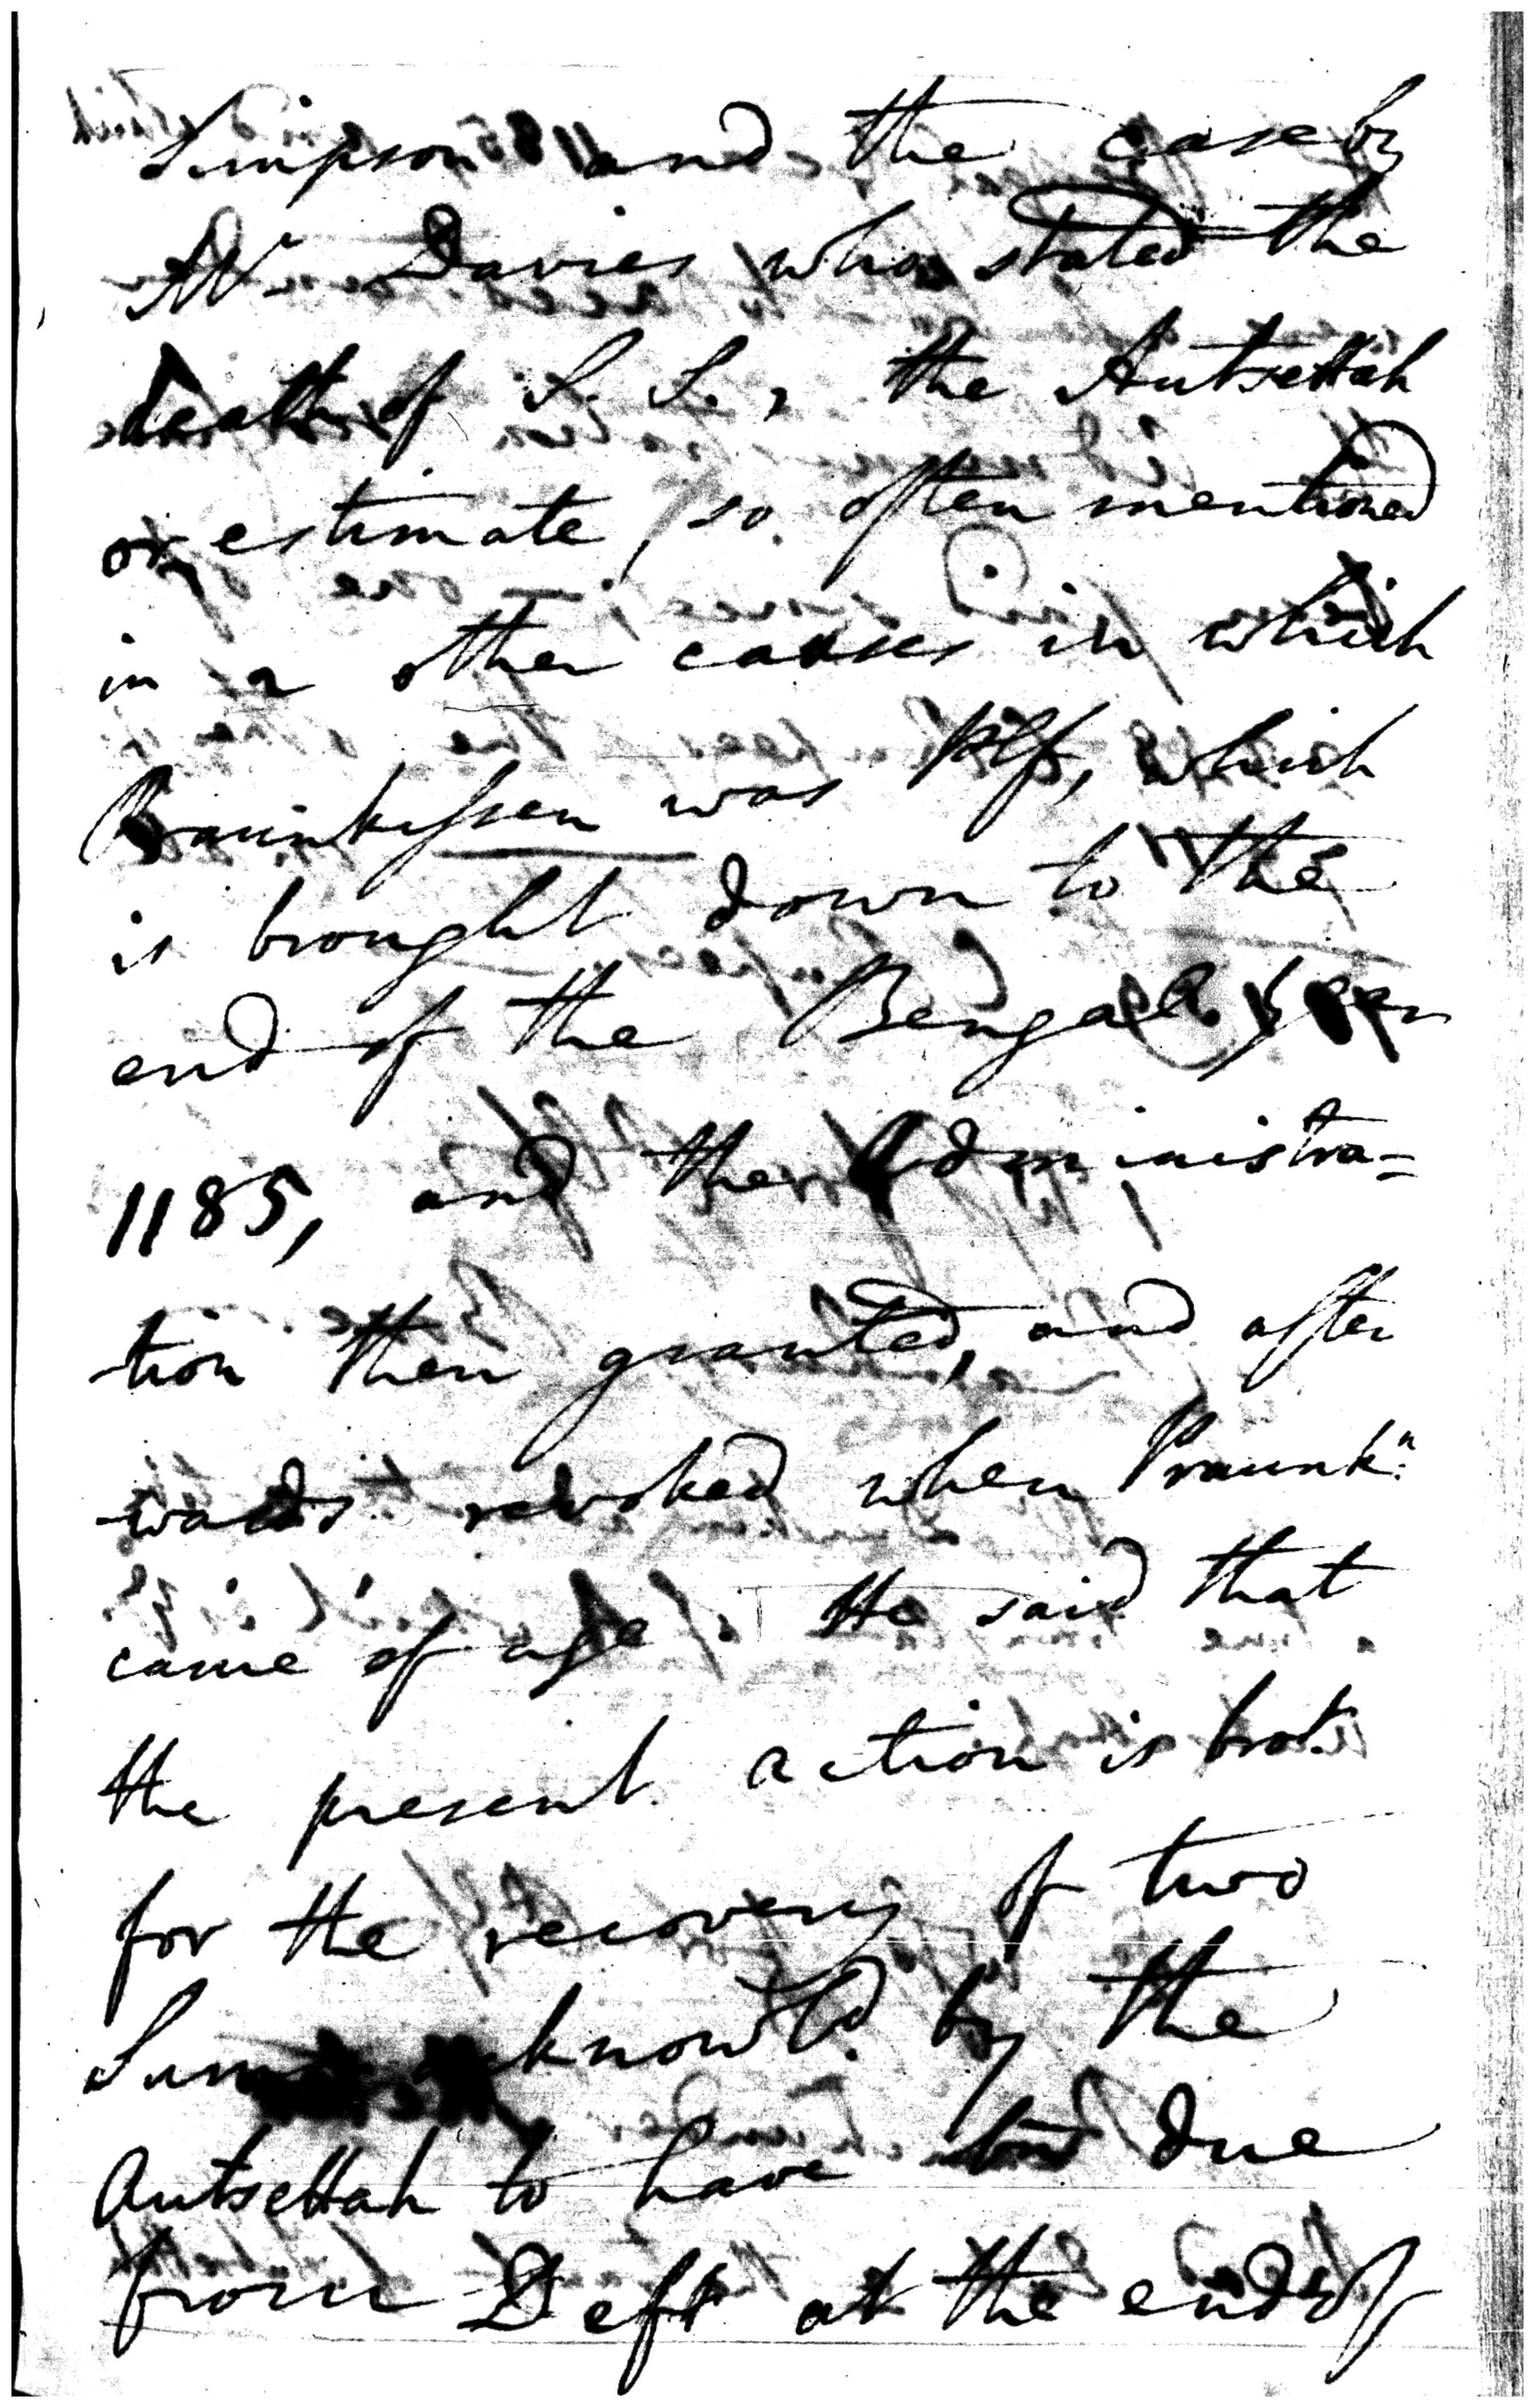 Simpson and the case by
Mr. Davies who stated the
death of S. S., the Autsettah
or estimate, so often mentioned
in 2 other causes in which
Praunkissen was Plf, which
is brought down to the
end of the Bengal year
1185, and the Administra-
-tion then granted, and after
-wards revoked when Praunkn.
came of age. He said that
the present action is brot.
for the recovery of two
Sums acknowld. by the
Autsettah to have been due
from Deft at the end of